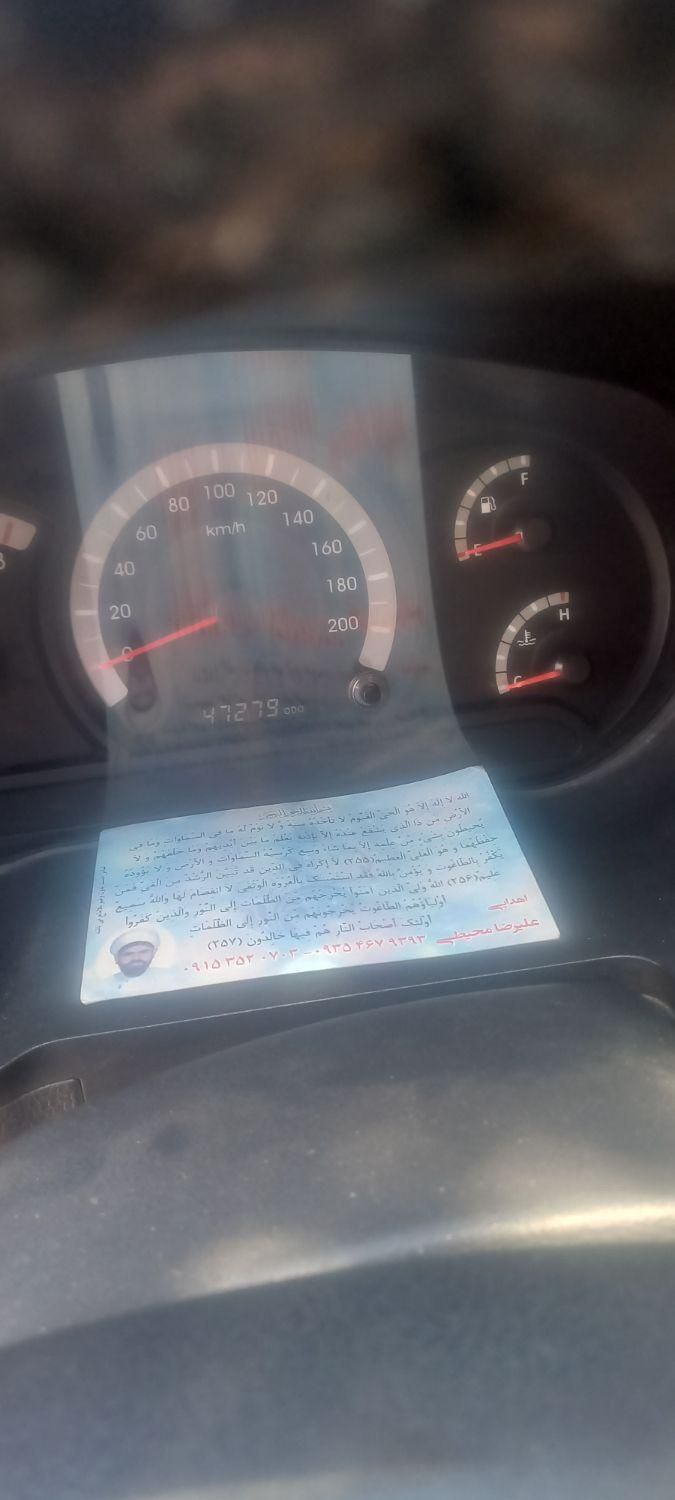 100
80
120
60
km/h
140
40
160
20
180
0
200
47279 ODO
F
E
H
C
الله لا إله إلا هو الحي القيوم لا تأخذه سنة و لا نوم له ما في السماوات وما في
الأرض من ذا الذي يشفع عنده إلا بإذنه يعلم ما بين أيديهم وما خلفهم و لا
يحيطون بشيء من علمه إلا بما شاء وسع كرسيه السماوات و الأرض و لا يؤوده
حفظهما و هو العلي العظيم(۲۵۵) لا إكراه في الدين قد تبين الرشد من الغي فمن
يكفر بالطاغوت و يؤمن بالله فقد استمسك بالعروة الوثقى لا انفصام لها والله سميع
عليم(۲۵۶) الله ولي الذين آمنوا يخرجهم من الظلمات إلى النور والذين كفروا
أولياؤهم الطاغوت يخرجونهم من النور إلى الظلمات
أولئك أصحاب النار هم فيها خالدون (۲۵۷)
اهدایی
علیرضا محیطی ۰۹۳۵ ۴۶۷ ۹۳۹۳ - ۰۹۱۵ ۳۵۲ ۰۷۰۳